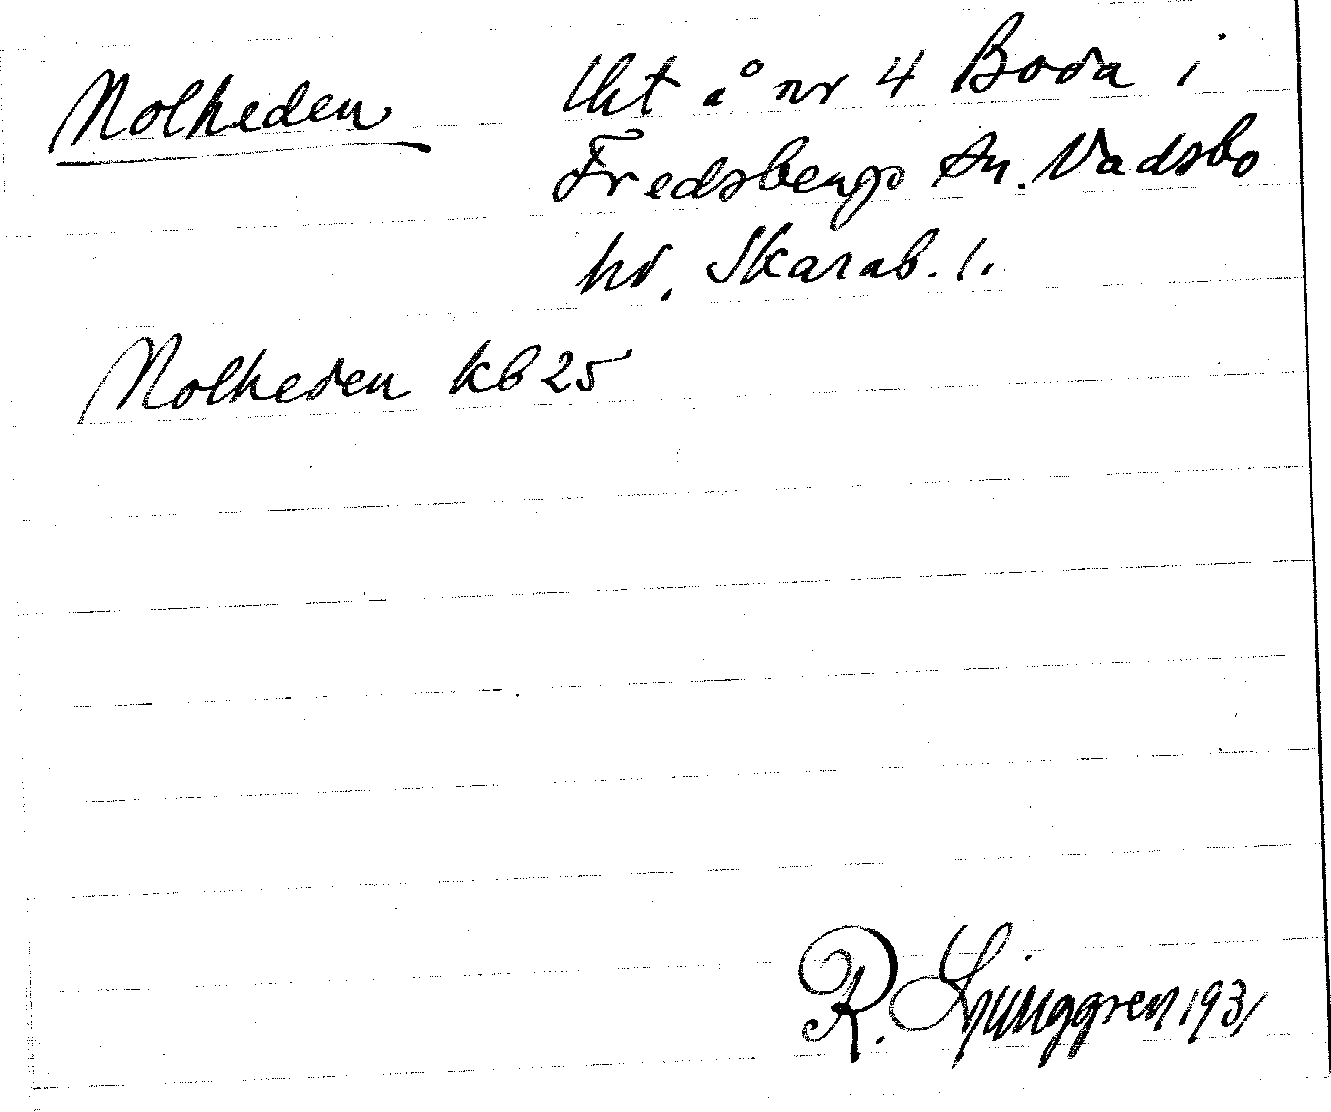 Nolheden
Uht å nr 4 Boda i
Fredsbergs sn. Vadsbo
hd. Skarab. l.
Nolheden kb 25
R. Ljunggren 1931